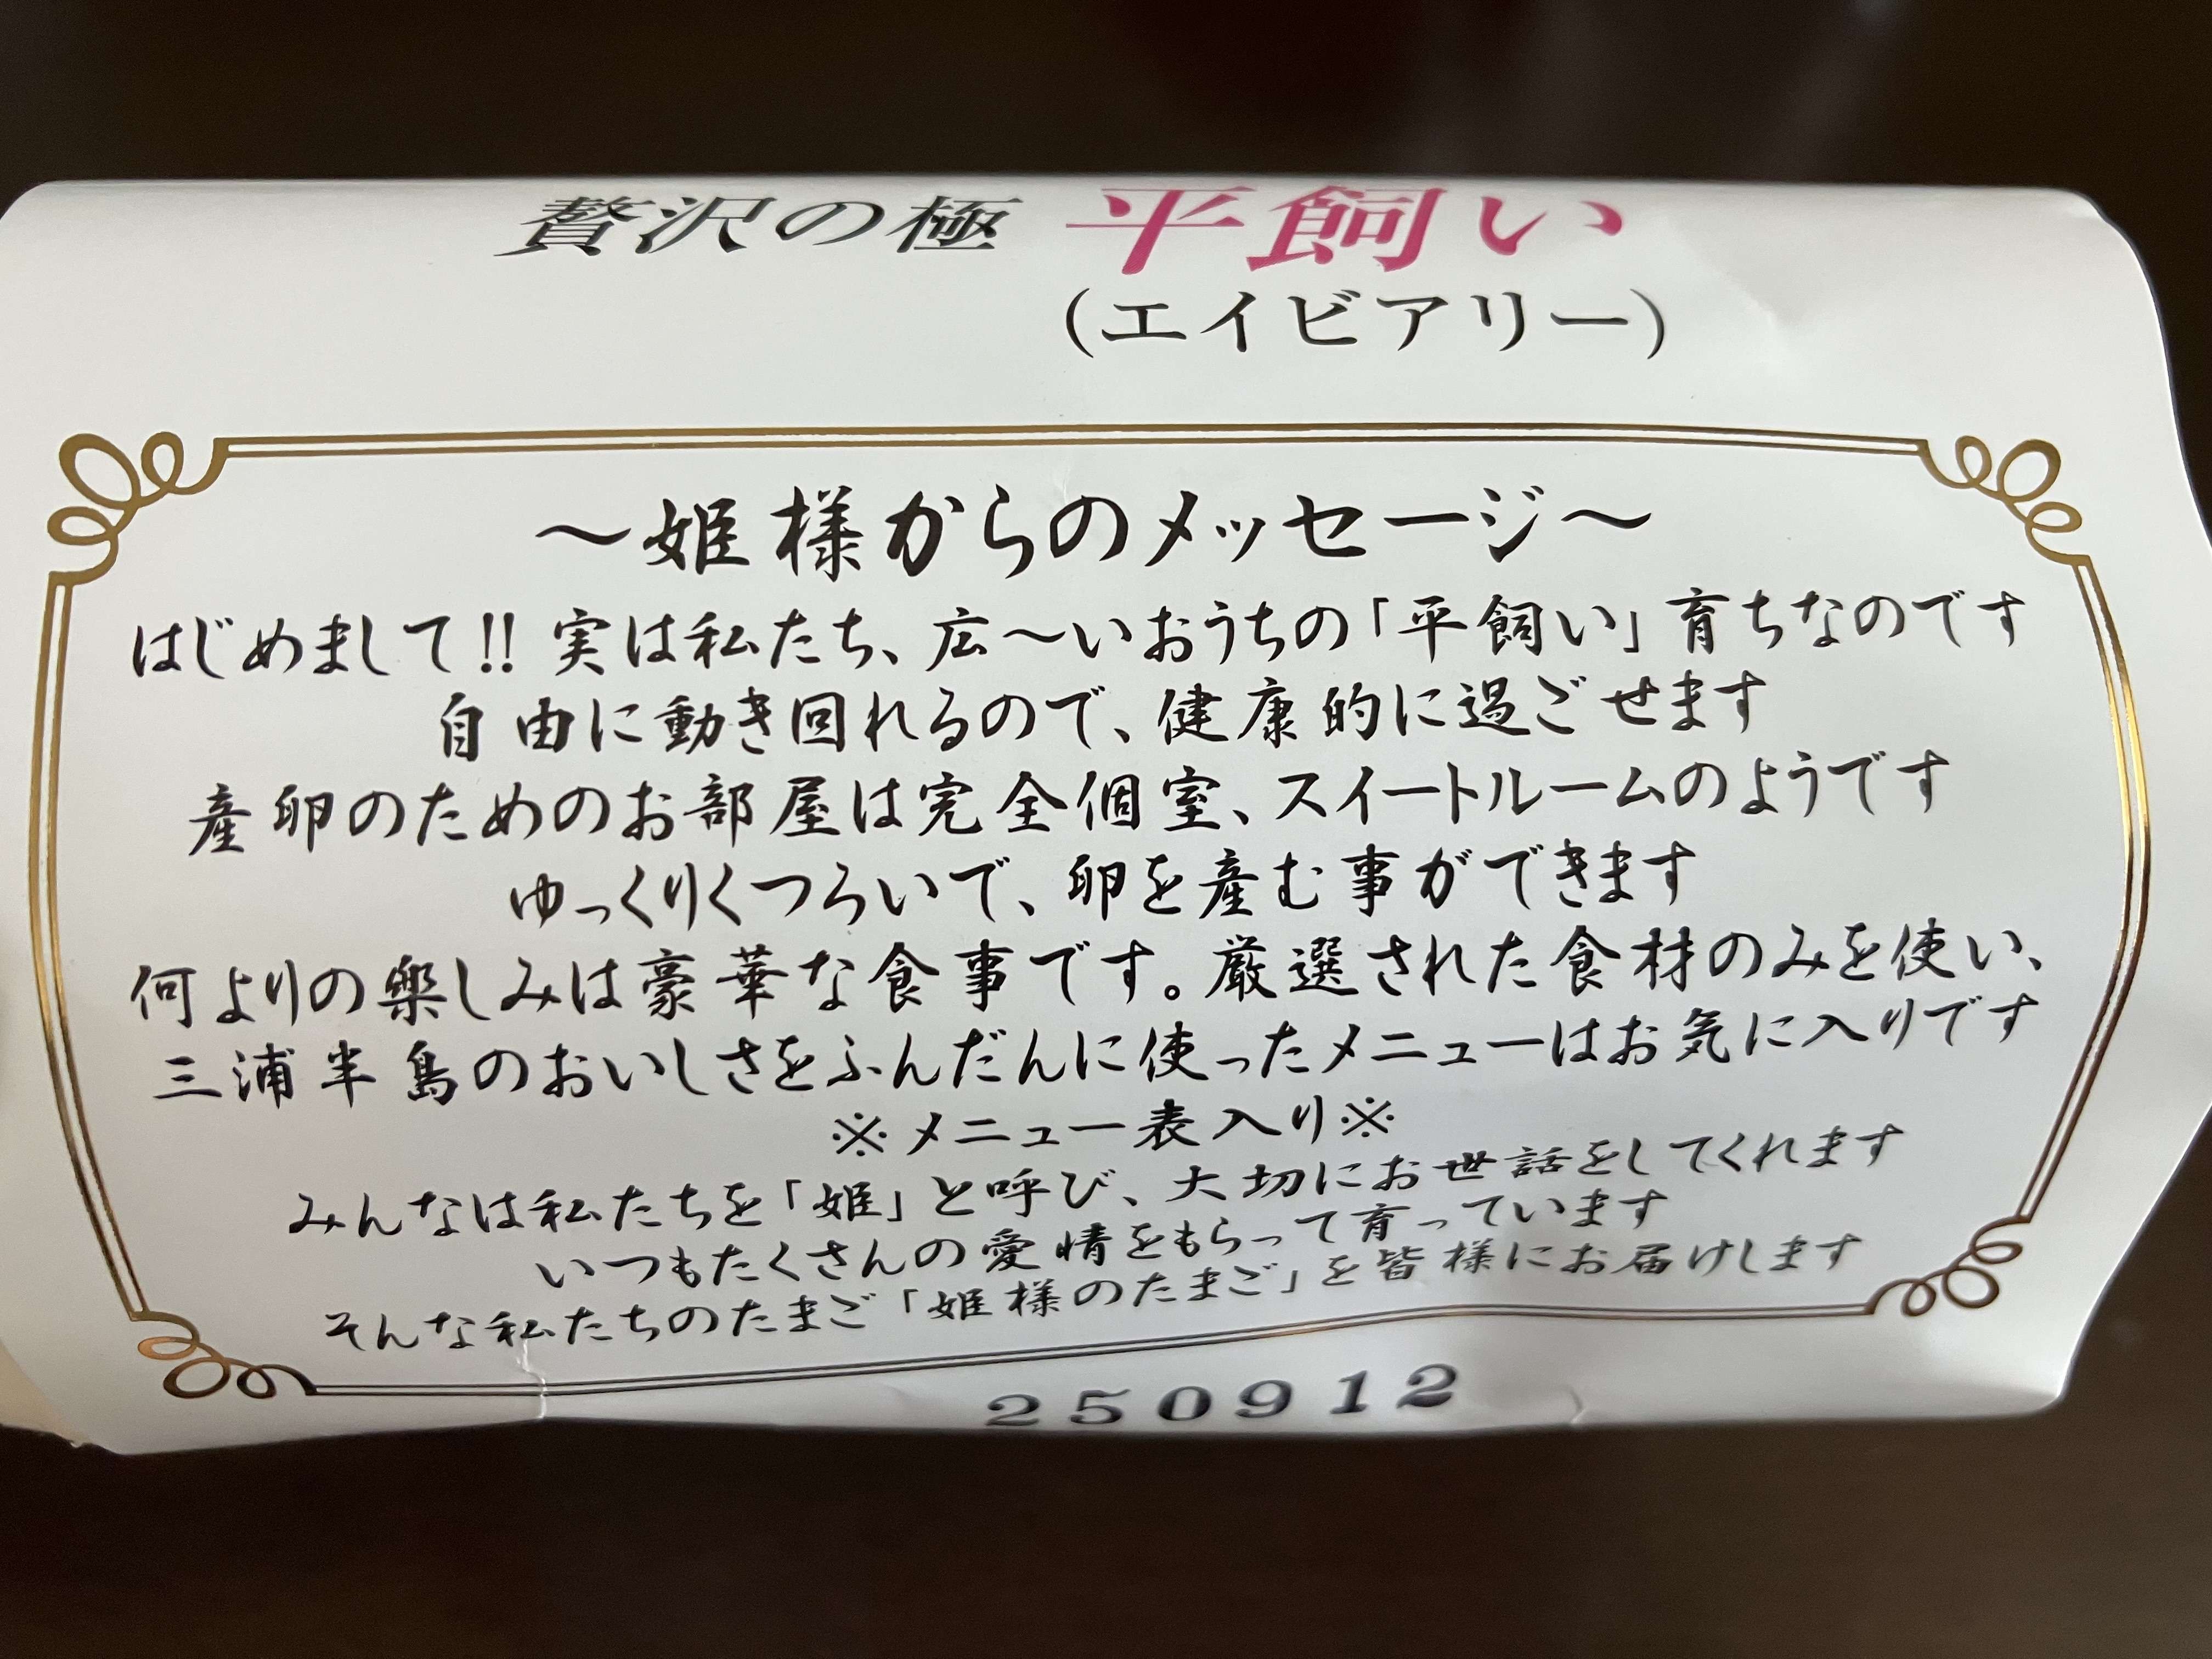 贅沢の極 平飼い
(エイビアリー)
～姫様からのメッセージ～
はじめまして!! 実は私たち、広～いおうちの「平飼い」育ちなのです
自由に動き回れるので、健康的に過ごせます
産卵のためのお部屋は完全個室、スイートルームのようです
ゆっくりくつろいで、卵を産む事ができます
何よりの楽しみは豪華な食事です。厳選された食材のみを使い、
三浦半島のおいしさをふんだんに使ったメニューはお気に入りです
※メニュー表入り※
みんなは私たちを「姫」と呼び、大切にお世話をしてくれます
いつもたくさんの愛情をもらって育っています
そんな私たちのたまご「姫様のたまご」を皆様にお届けします
250912